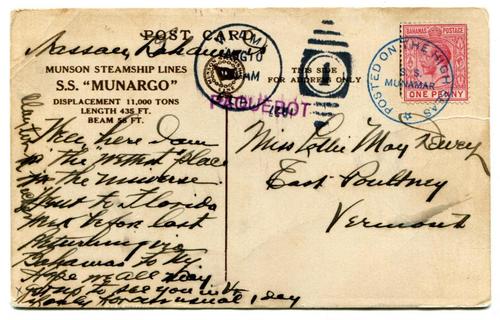 POST CARD
Nassau, Bahamas
MUNSON STEAMSHIP LINES
S.S. "MUNARGO"
DISPLACEMENT 11,000 TONS
LENGTH 435 FT.
BEAM 58 FT.
THIS SIDE
FOR ADDRESS ONLY
MIAMI
AUG 10
AM
1
PAQUEBOT
BAHAMAS POSTAGE
ONE PENNY
POSTED ON THE HIGH SEAS
S.S.
MUNAMAR
Well here I am
in the prettiest place
in the universe
Went to Florida
week before last
returning via
Bahamas to NY.
Hope we all may
get up to see you
only for an usual 1 day
Miss Lollie May Dewey
East Poultney
Vermont